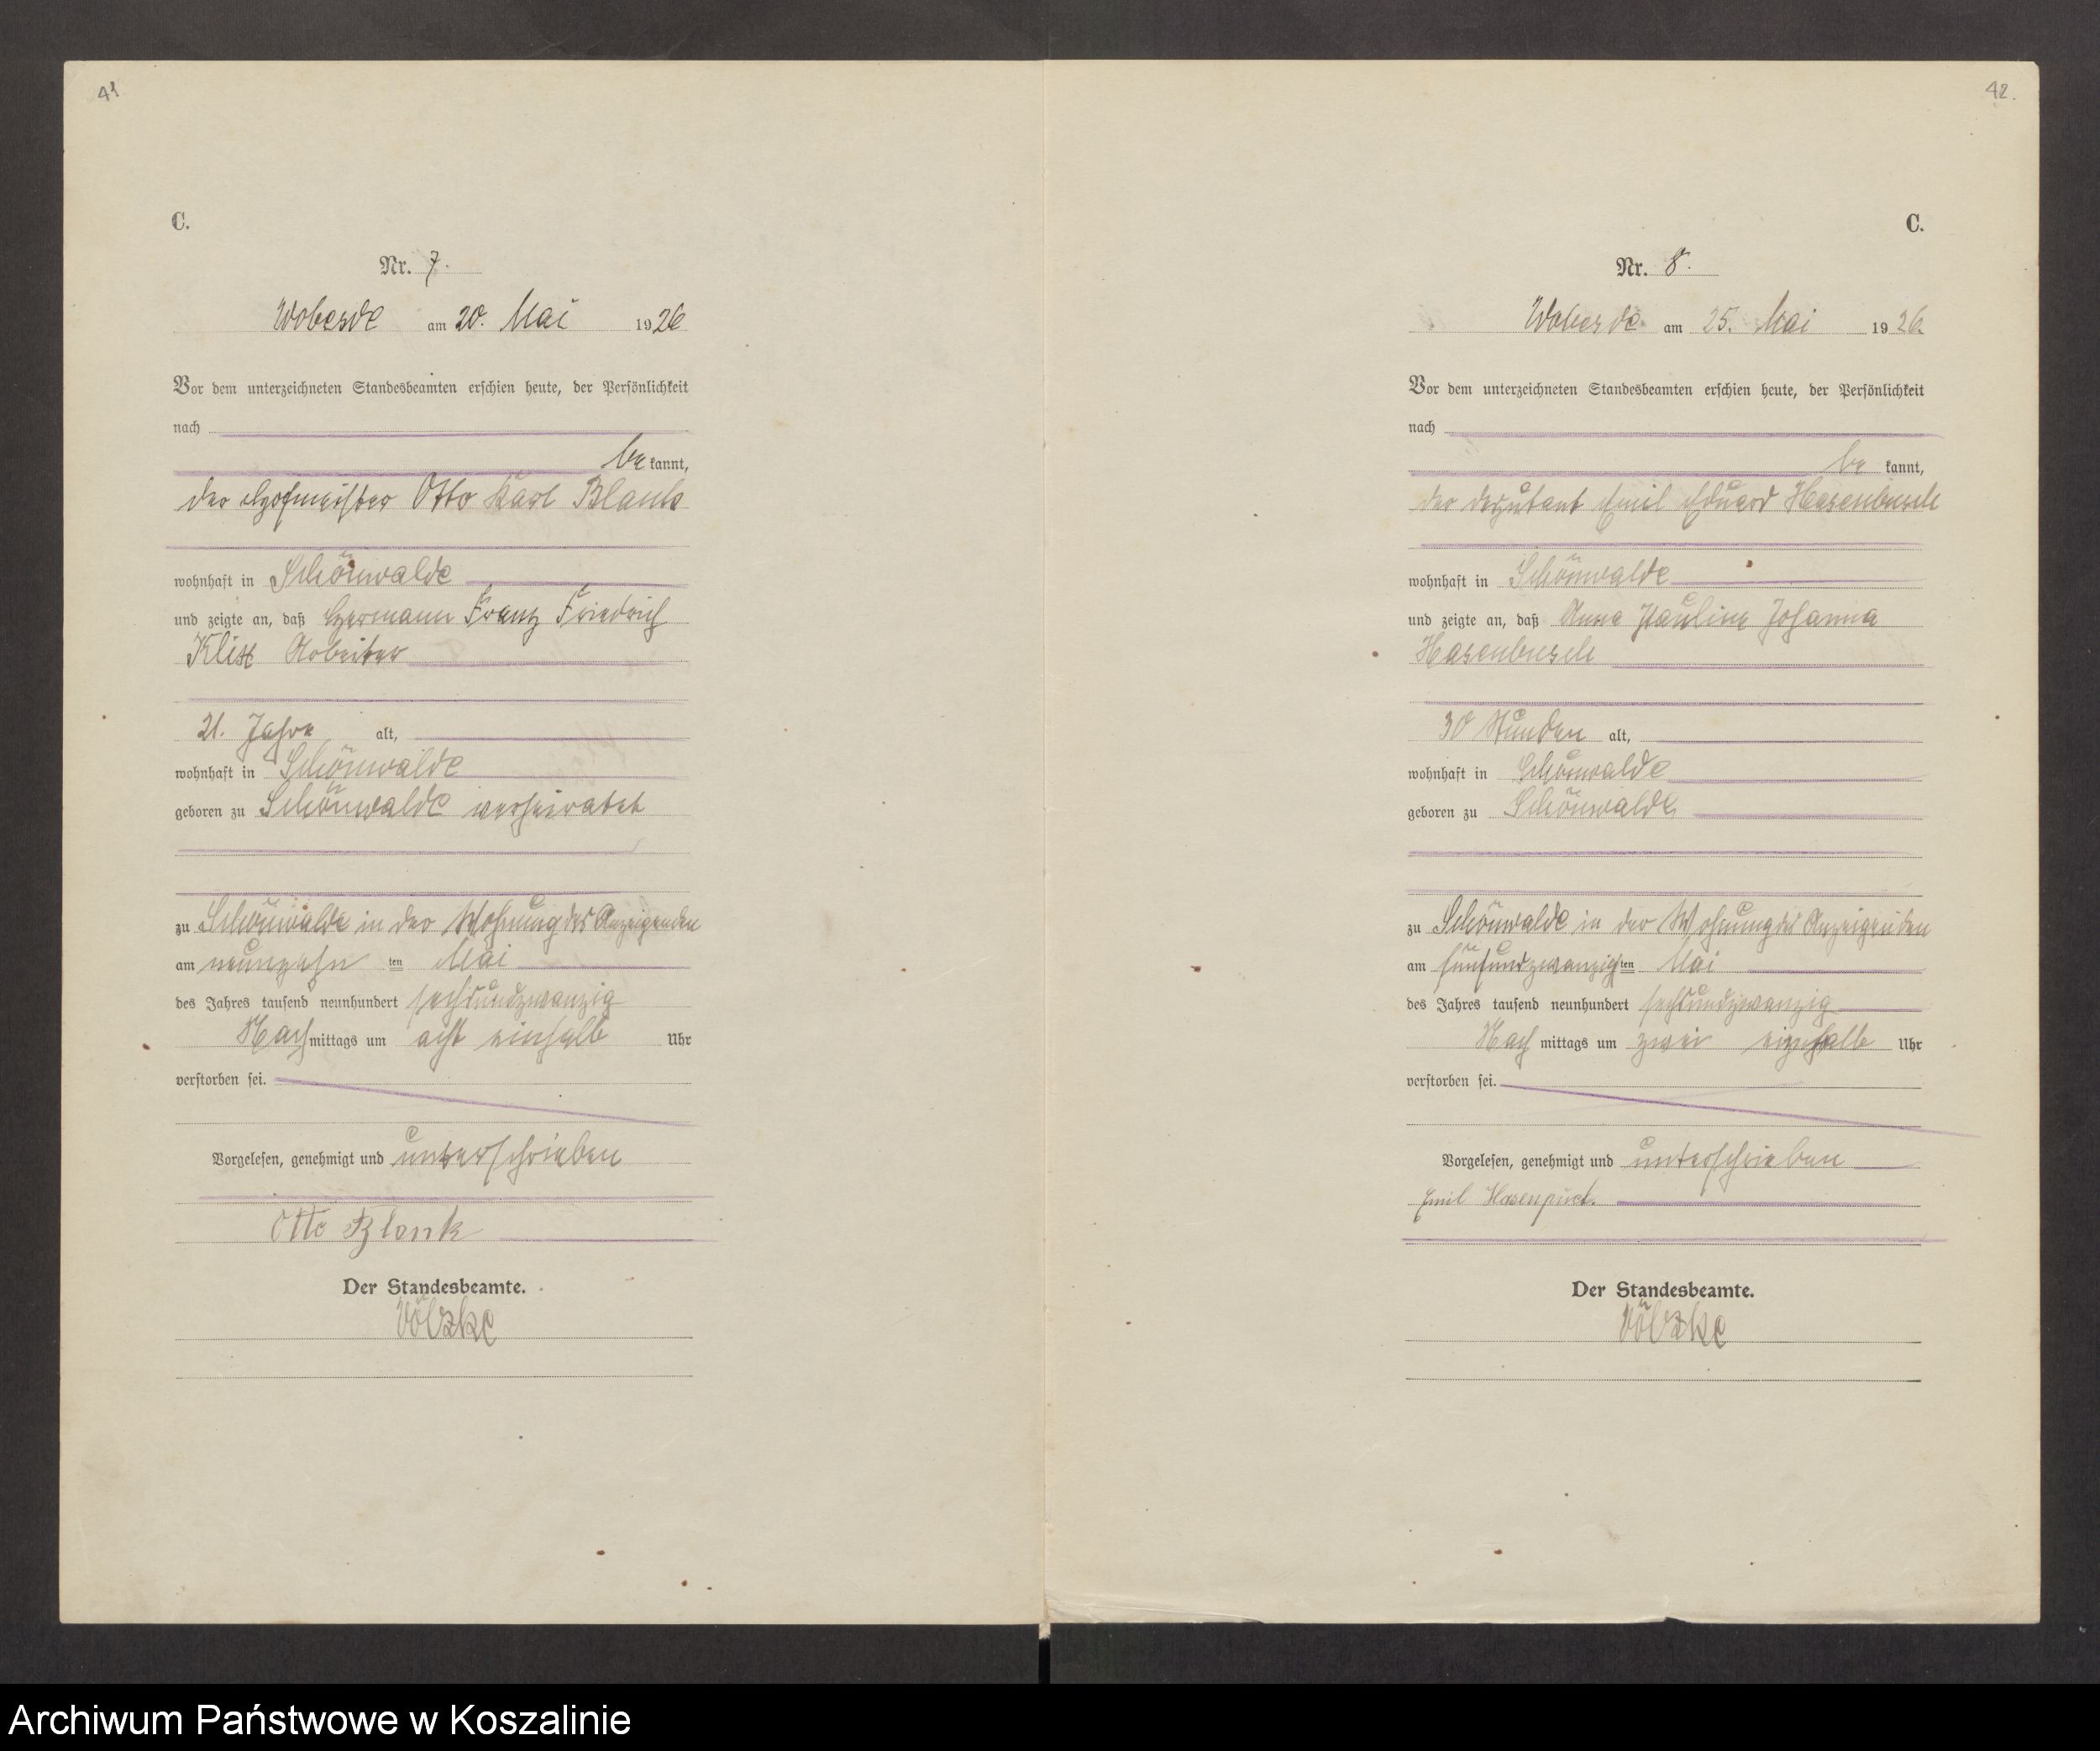 41
C.
Nr. 7.
Wobesde am 20. Mai 1926
Vor dem unterzeichneten Standesbeamten erschien heute, der Persönlichkeit
nach
be kannt,
der Hofmeister Otto Karl Blank
wohnhaft in Schönwalde
und zeigte an, daß Hermann Franz Friedrich
Klist Arbeiter
21. Jahre alt,
wohnhaft in Schönwalde
geboren zu Schönwalde verheiratet
zu Schönwalde in der Wohnung des Anzeigenden
am neunzehn ten Mai
des Jahres tausend neunhundert sechsundzwanzig
Nach mittags um acht einhalb Uhr
verstorben sei.
Vorgelesen, genehmigt und unterschrieben
Otto Blank
Der Standesbeamte.
Völzke
42.
C.
Nr. 8.
Wobesde am 25. Mai 1926.
Vor dem unterzeichneten Standesbeamten erschien heute, der Persönlichkeit
nach
be kannt,
der Deputant Emil Eduard Hasenbusch
wohnhaft in Schönwalde
und zeigte an, daß Anna Pauline Johanna
Hasenbusch
30 Stunden alt,
wohnhaft in Schönwalde
geboren zu Schönwalde
zu Schönwalde in der Wohnung des Anzeigenden
am fünfundzwanzig ten Mai
des Jahres tausend neunhundert sechsundzwanzig
Nach mittags um zwei einhalb Uhr
verstorben sei.
Vorgelesen, genehmigt und unterschrieben
Emil
Der Standesbeamte.
Völzke
Archiwum Państwowe w Koszalinie